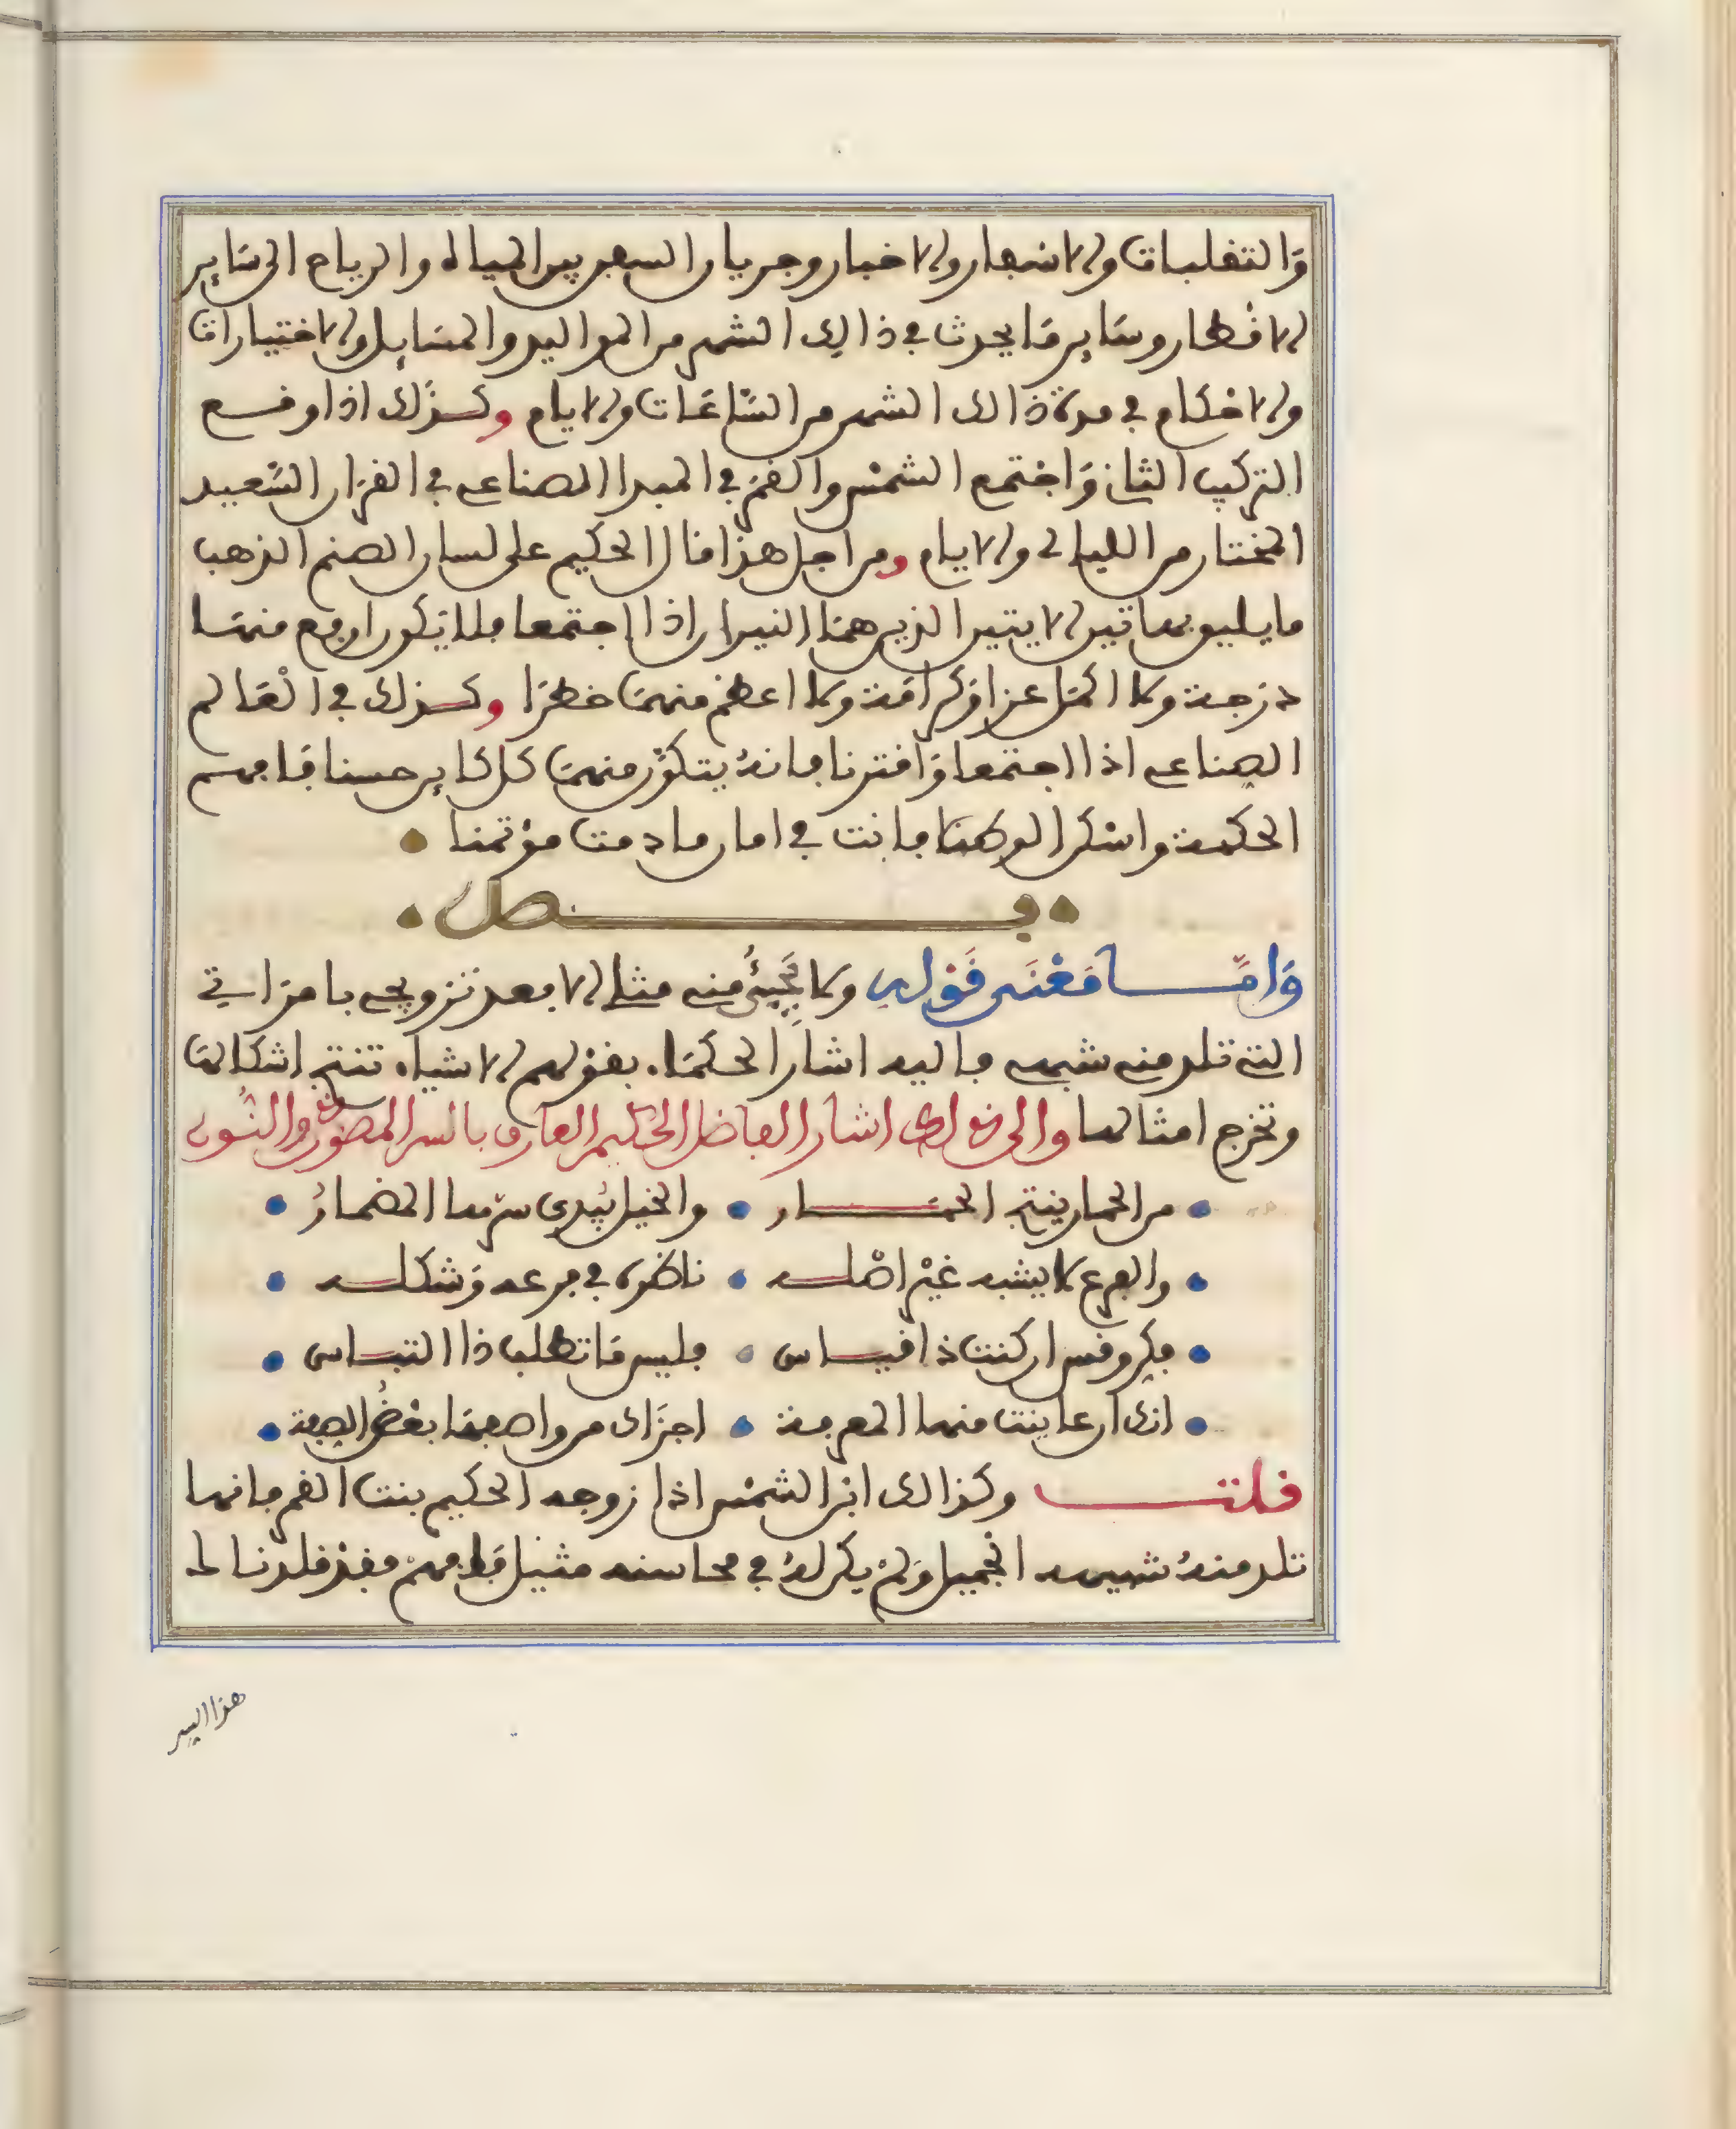 وَالتقلبات والاشعار والاخبار وجريان السفن بين المياه والرياح الى سَاير
الاقطار وسَاير مَا يحدث في ذالك الشهر من المواليد والمسَايل والاختيارات
والاحكام في مدة ذالك الشهر من السّاعَات والايام وكذلك اذا وقع
التركيب الثان وَاجتمع الشمْس والقمَر في المبدا الصناعي في القرَان السَّعيد
المختار من الليالى والايام ومن اجل هذا قال الحكيم على لسان الصنم الذهب
ما يليق بهاتين الايتين الذين همَا النيران اذا اجتمعا فلا يَكون ارفع منهمَا
درَجة ولا اكمَل عزا وَكرامَة ولا اعظَم منهمَا خطرَا وكذلك في الْعَالم
الصناعي اذا اجتمعا وَاقترنا فانهُ يتكوَّن منهمَا كل كاين حسنا فَافهم
الحكمة واشكر الوهَّاب فانت في امان ما دمت مؤتمنا
فصل
وَامَّا مَعْنَى قَوْلِي ولا يَجِيئُ مني مثلي الا بعد تزويجي بامرَاتي
التى تلد مني شبهي فاليه اشارَ الحكمَاء بقوْلهم الاشياء تنتج اشكالهَا
وتخرج امثالها والى قولى اشار الفاضل الحكيم العارف بالسر المصون والنُون
من الحمار ينتج الحمَار والخيل يُبدى سرّها المضمارُ
والفرع لا يشبه غيْر اصْله ناظره في فرعه وَشكله
فكر وقس ان كنت ذا قياس فليس مَا تطلب ذا التبَاس
انك ان عاينت منها المعرفة اجزَاك من واصفهَا بعْضُ الصفة
قلت وكذالك ابن الشمْس اذا زوجه الحكيم بنت القمر فانها
تلد منهُ شبيهه الجْميل وَلمْ يكن لهُ في محاسنه مثيل فَافهمْ فقدْ قلدنا لك
هذا السر